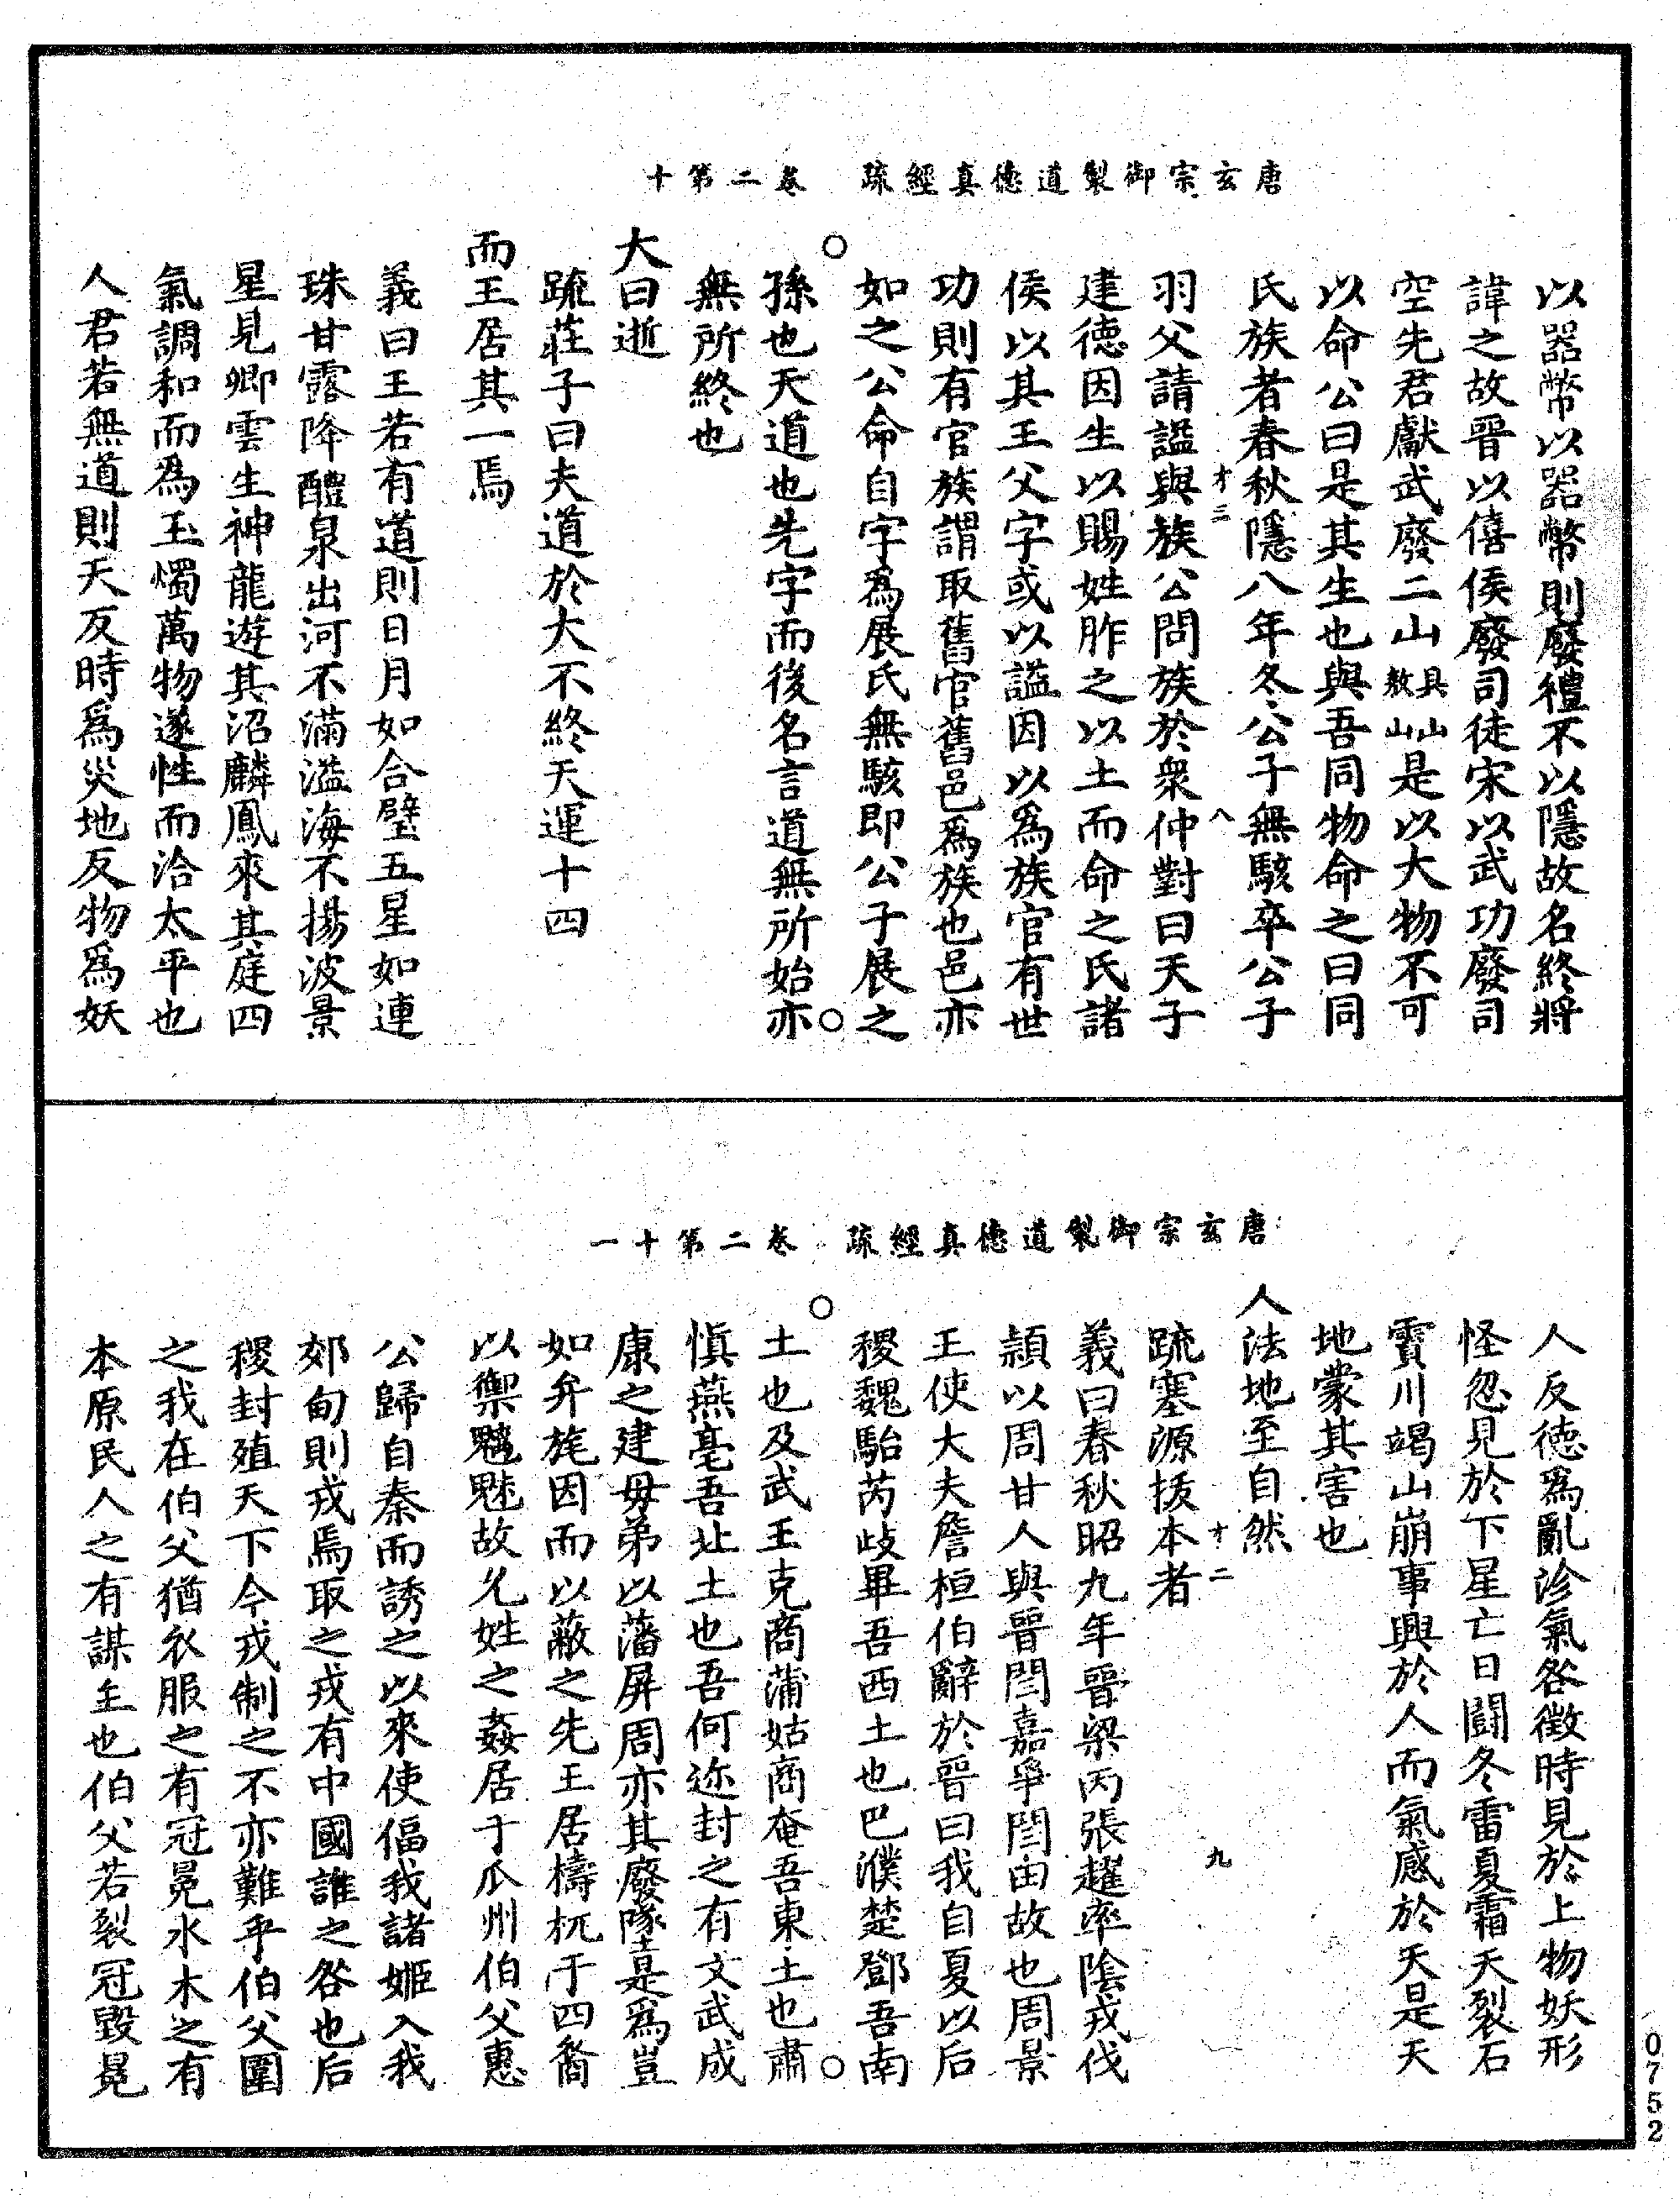 唐玄宗御製道德真經疏　卷二第十
以器幣以器幣則廢禮不以隱故名終將
諱之故晉以僖侯廢司徒宋以武功廢司
空先君獻武廢二山具山敖山是以大物不可
以命公曰是其生也與吾同物命之曰同
氏族者春秋隱八年冬公子無駭卒公子
才三　八
羽父請謚與族公問族於衆仲對曰天子
建德因生以賜姓胙之以土而命之氏諸
侯以其王父字或以謚因以爲族官有世
功則有官族謂取舊官舊邑爲族也邑亦
如之公命自字爲展氏無駭即公子展之
孫也天道也先字而後名言道無所始亦
無所終也
大曰逝
疏莊子曰夫道於大不終天運十四
而王居其一焉
義曰王若有道則日月如合璧五星如連
珠甘露降醴泉出河不滿溢海不揚波景
星見卿雲生神龍遊其沼麟鳳來其庭四
氣調和而爲玉燭萬物遂性而洽太平也
人君若無道則天反時爲災地反物爲妖
唐玄宗御製道德真經疏　卷二第十一
人反德爲亂沴氣咎徵時見於上物妖形
怪忽見於下星亡日鬪冬雷夏霜天裂石
賣川竭山崩事興於人而氣感於天是天
地蒙其害也
人法地至自然
才二　九
疏塞源拔本者
義曰春秋昭九年晉梁丙張趯率陰戎伐
頴以周甘人與晉閻嘉爭閻田故也周景
王使大夫詹桓伯辭於晉曰我自夏以后
稷魏駘芮歧畢吾西土也巴濮楚鄧吾南
土也及武王克商蒲姑商奄吾東土也肅
慎燕亳吾北土也吾何迩封之有文武成
康之建毋弟以藩屏周亦其廢墜是爲豈
如弁旄因而以蔽之先王居檮杌于四裔
以禦魑魅故允姓之姦居于瓜州伯父惠
公歸自秦而誘之以來使偪我諸姬入我
郊甸則戎焉取之戎有中國誰之咎也后
稷封殖天下今戎制之不亦難乎伯父圖
之我在伯父猶衣服之有冠冕水木之有
本原民人之有謀主也伯父若裂冠毀冕
0752